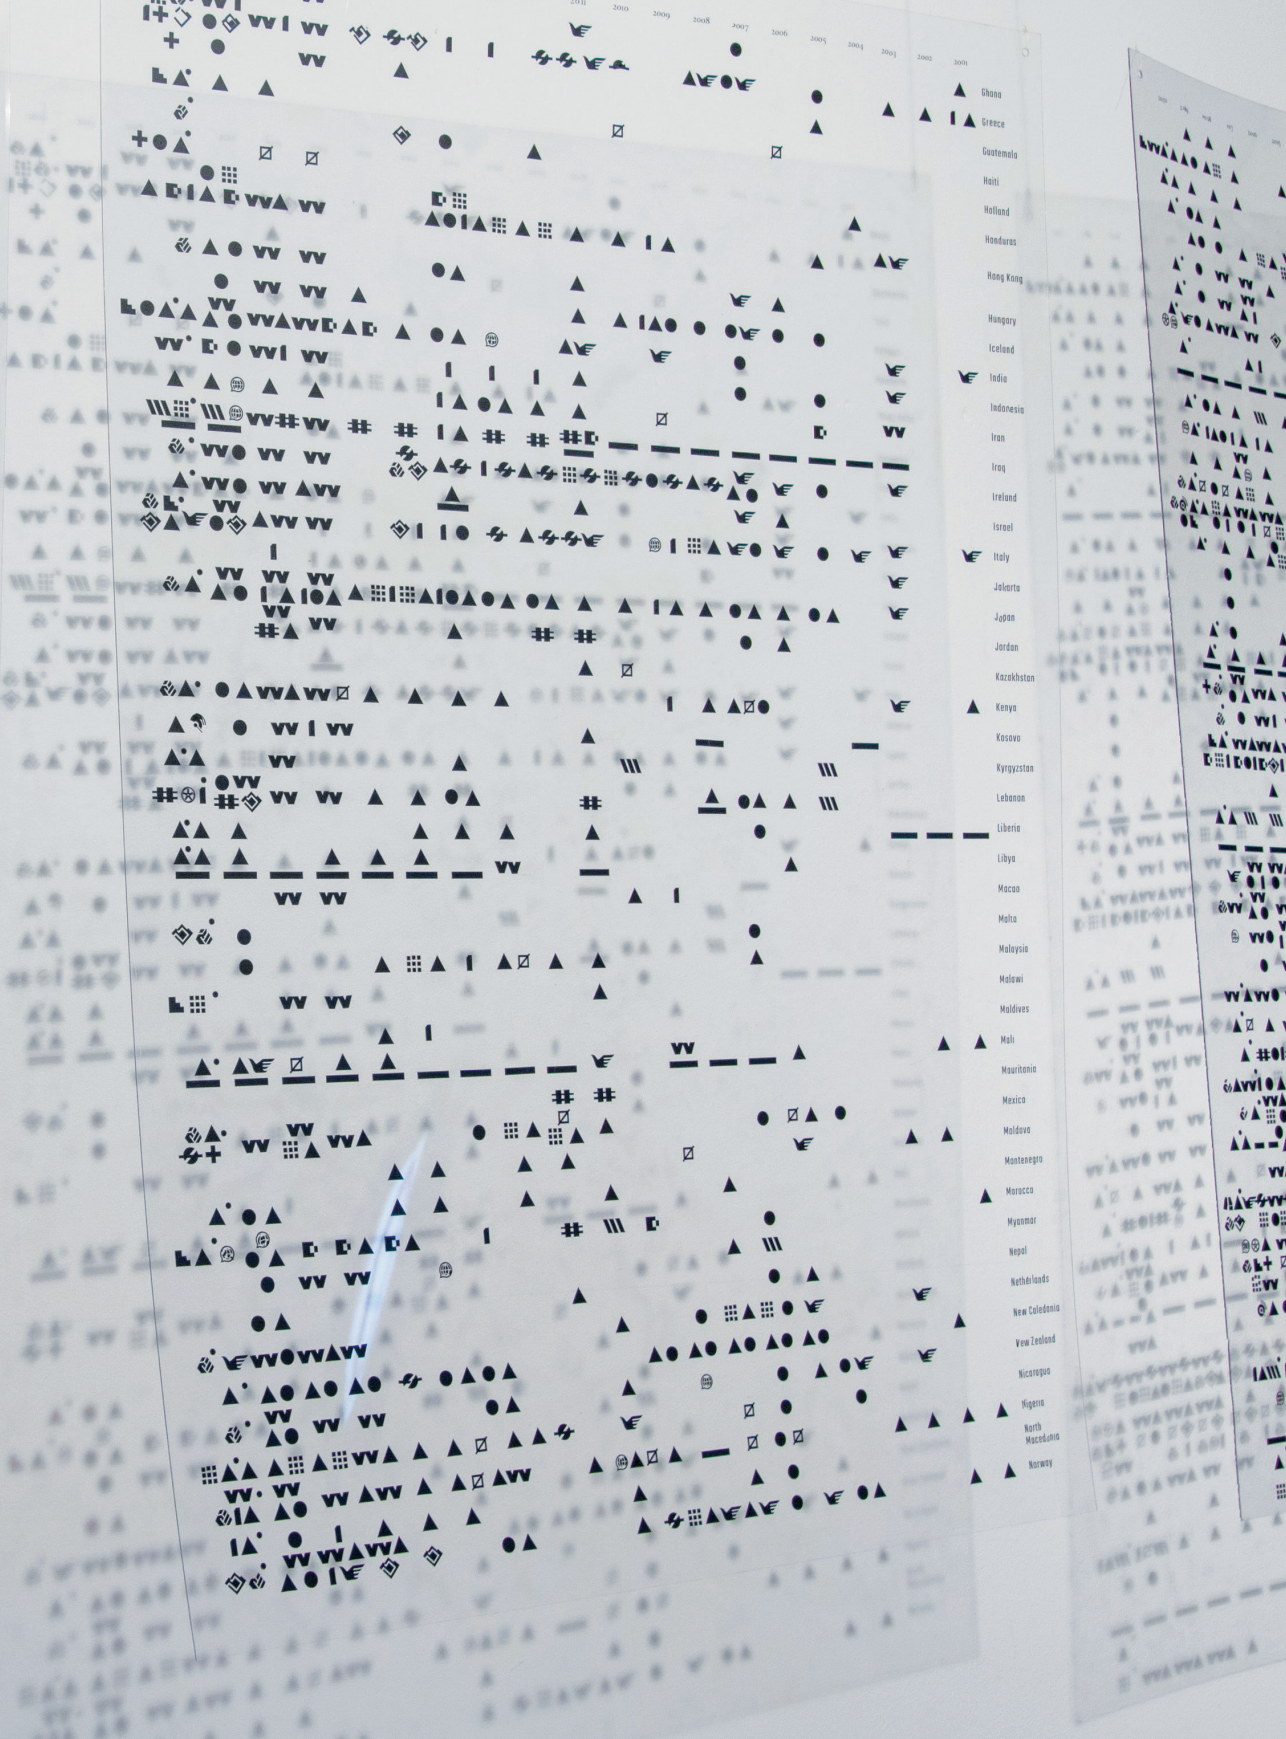 2011 2010 2009 2008 2007 2006 2005 2004 2003 2002 2001
Ghana
Greece
Guatemala
Haiti
Holland
Honduras
Hong Kong
Hungary
Iceland
India
Indonesia
Iran
Iraq
Ireland
Israel
Italy
Jakarta
Japan
Jordan
Kazakhstan
Kenya
Kosovo
Kyrgyzstan
Lebanon
Liberia
Libya
Macao
Malta
Malaysia
Malawi
Maldives
Mali
Mauritania
Mexico
Moldova
Montenegro
Morocco
Myanmar
Nepal
Netherlands
New Caledonia
New Zealand
Nicaragua
Nigeria
North
Macedonia
Norway